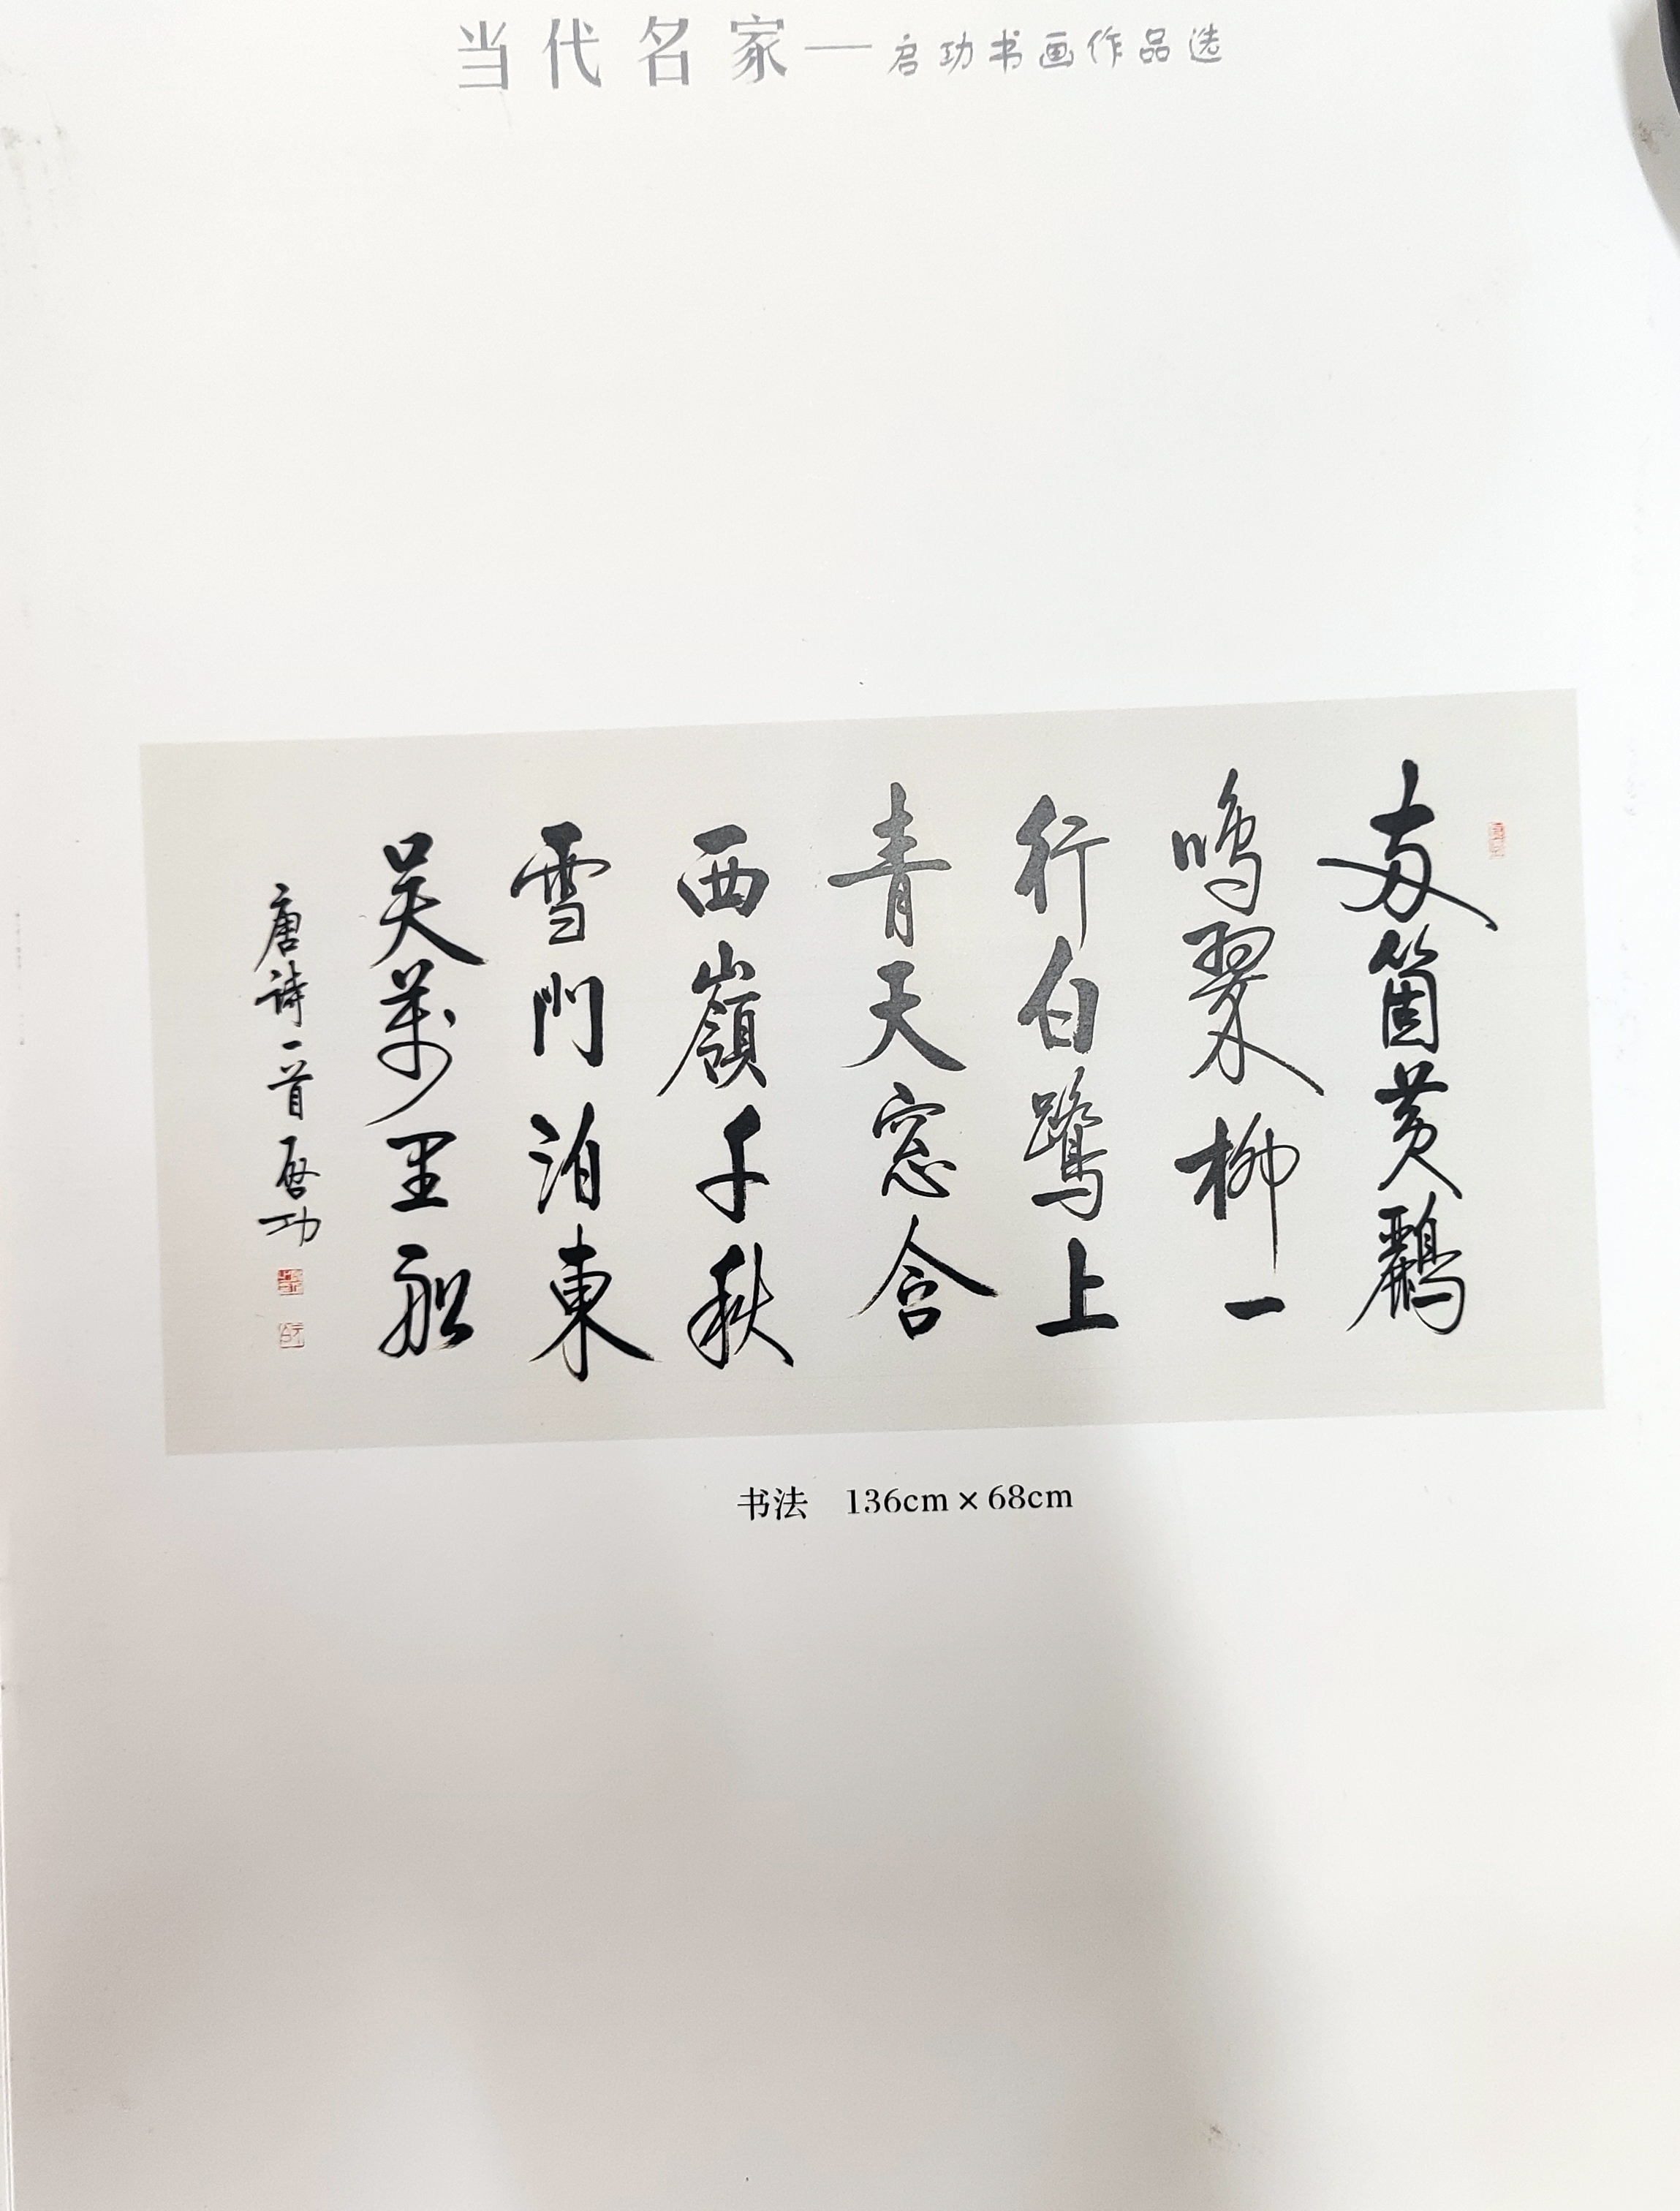 当代名家——启功书画作品选
两箇黄鸝
鳴翠柳一
行白鷺上
青天窓含
西嶺千秋
雪門泊東
吴萬里船
唐诗一首 启功
书法 136cm×68cm